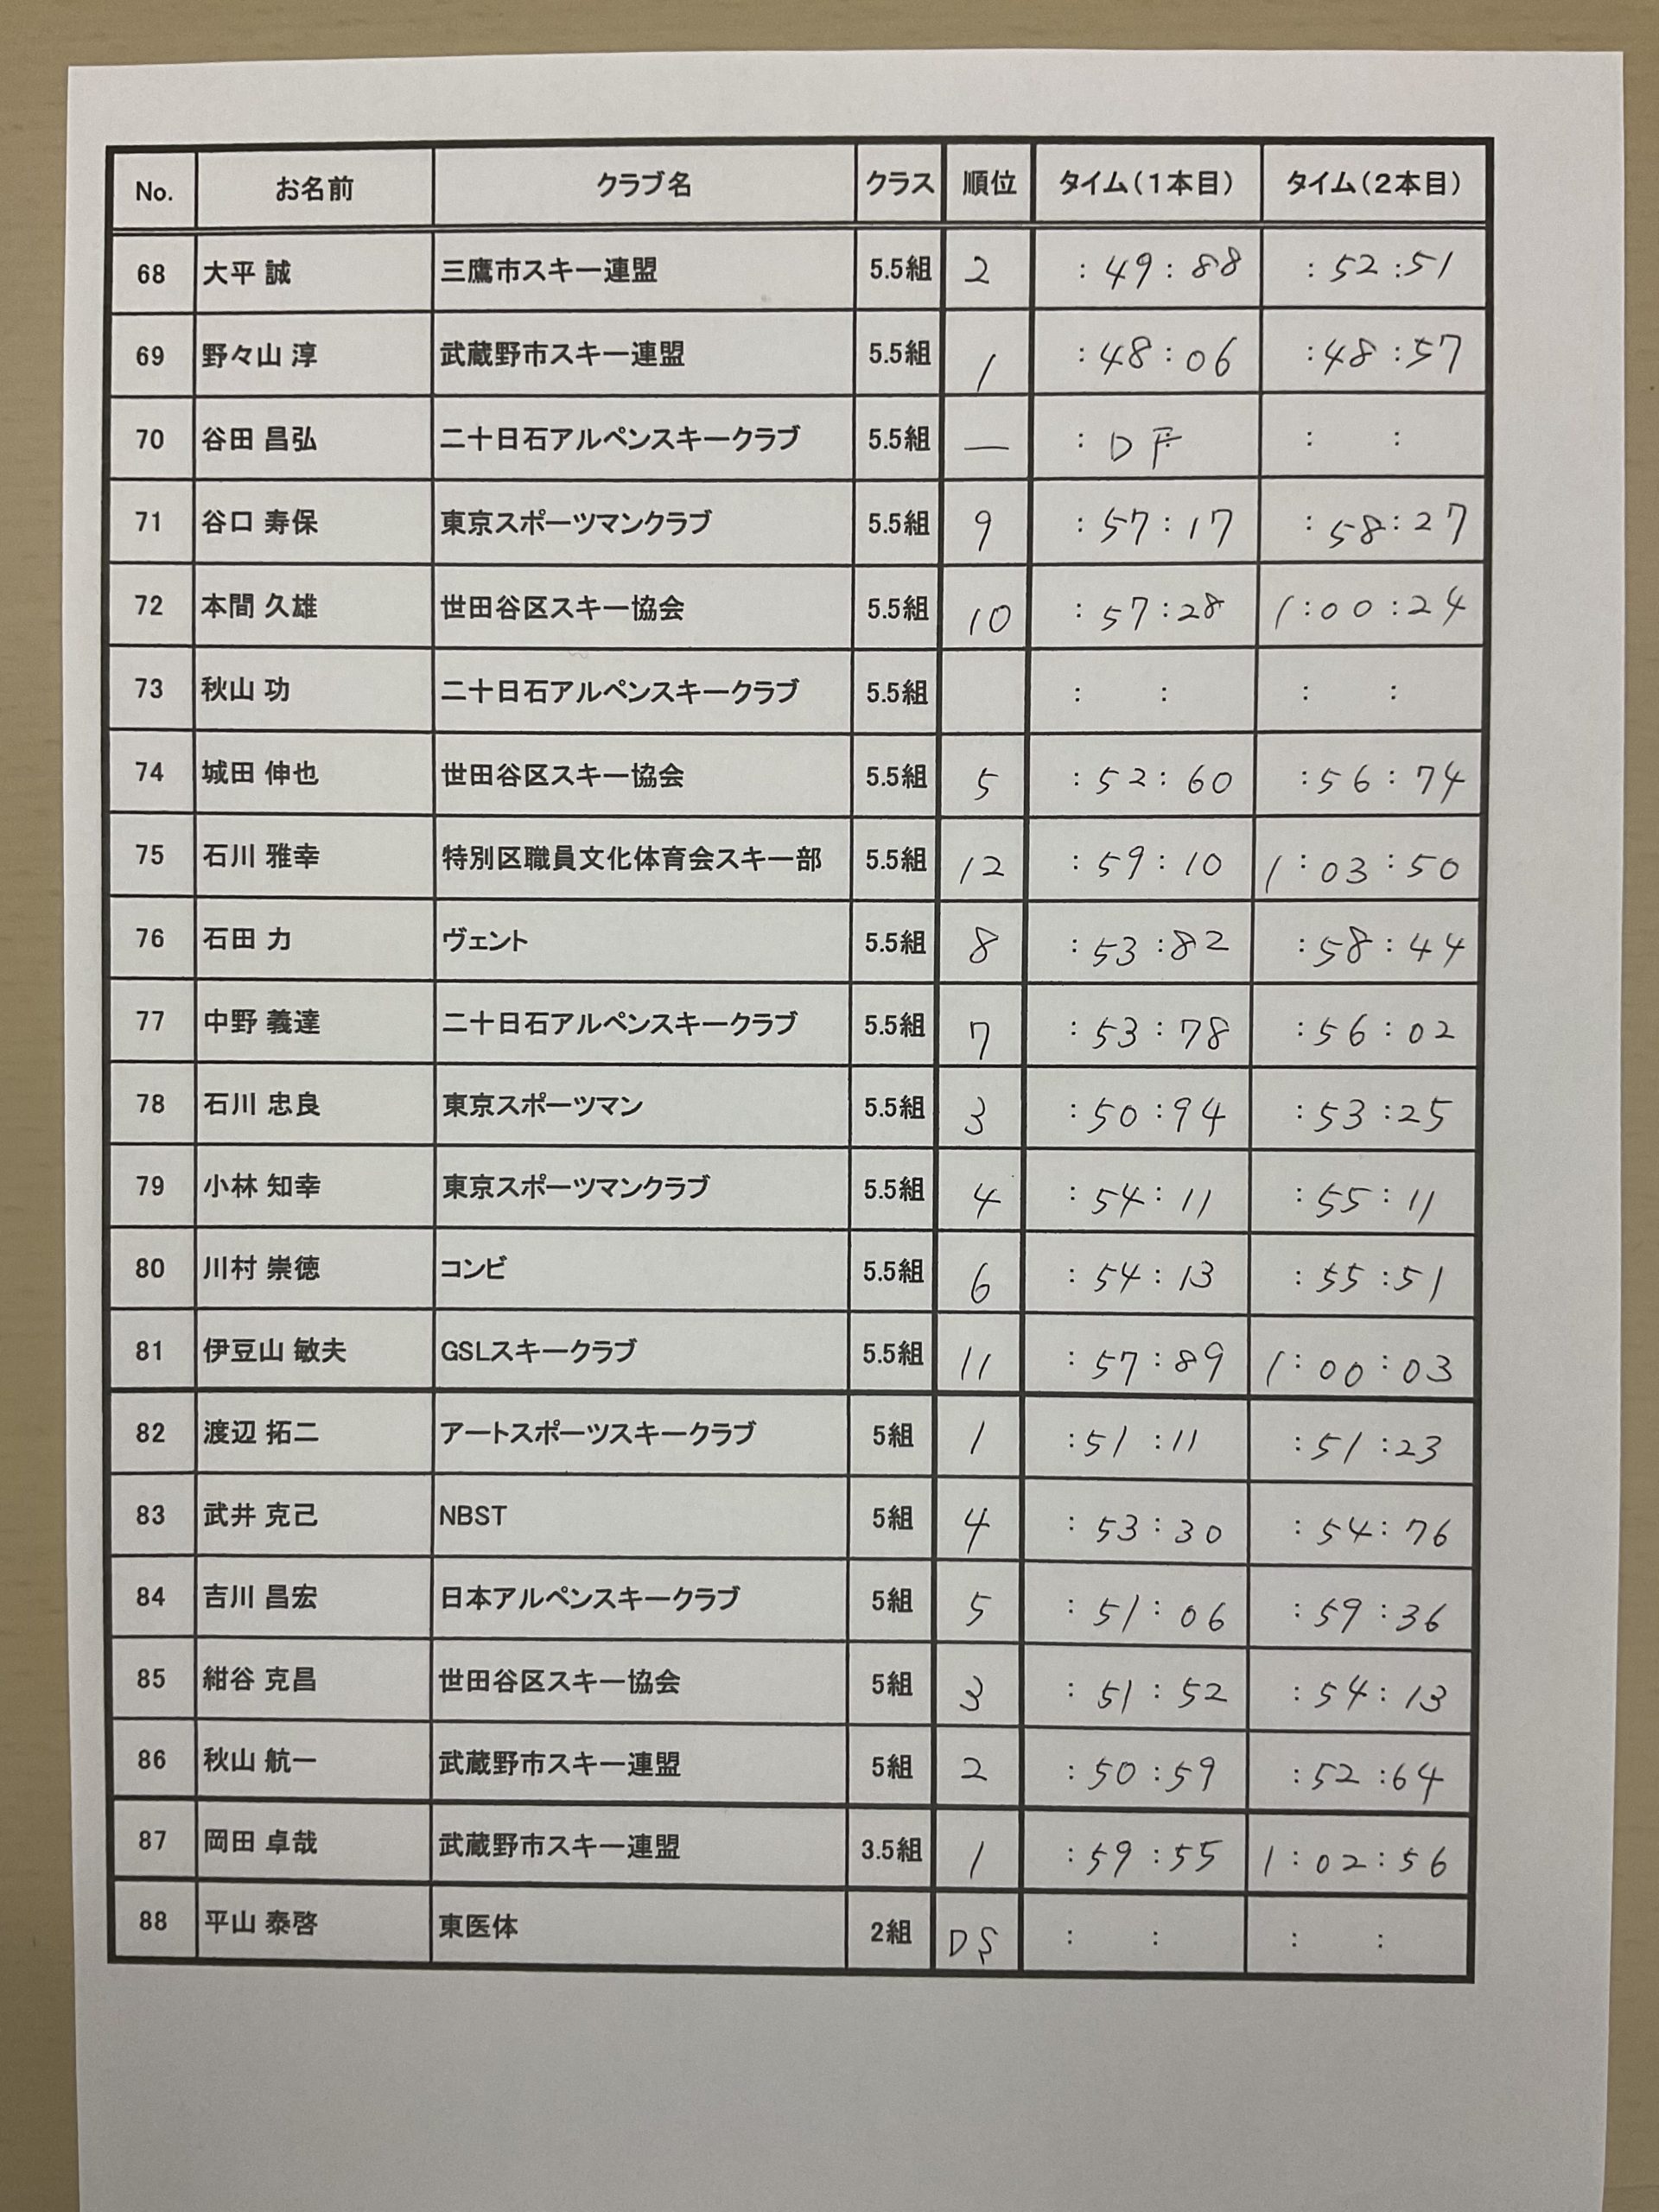 No. お名前 クラブ名 クラス 順位 タイム(1本目) タイム(2本目)
68 大平 誠 三鷹市スキー連盟 5.5組 2 :49:88 :52:51
69 野々山 淳 武蔵野市スキー連盟 5.5組 1 :48:06 :48:57
70 谷田 昌弘 二十日石アルペンスキークラブ 5.5組 — : DF : :
71 谷口 寿保 東京スポーツマンクラブ 5.5組 9 :57:17 :58:27
72 本間 久雄 世田谷区スキー協会 5.5組 10 :57:28 1:00:24
73 秋山 功 二十日石アルペンスキークラブ 5.5組 : : : :
74 城田 伸也 世田谷区スキー協会 5.5組 5 :52:60 :56:74
75 石川 雅幸 特別区職員文化体育会スキー部 5.5組 12 :59:10 1:03:50
76 石田 力 ヴェント 5.5組 8 :53:82 :58:44
77 中野 義達 二十日石アルペンスキークラブ 5.5組 7 :53:78 :56:02
78 石川 忠良 東京スポーツマン 5.5組 3 :50:94 :53:25
79 小林 知幸 東京スポーツマンクラブ 5.5組 4 :54:11 :55:11
80 川村 崇徳 コンビ 5.5組 6 :54:13 :55:51
81 伊豆山 敏夫 GSLスキークラブ 5.5組 11 :57:89 1:00:03
82 渡辺 拓二 アートスポーツスキークラブ 5組 1 :51:11 :51:23
83 武井 克己 NBST 5組 4 :53:30 :54:76
84 吉川 昌宏 日本アルペンスキークラブ 5組 5 :51:06 :59:36
85 紺谷 克昌 世田谷区スキー協会 5組 3 :51:52 :54:13
86 秋山 航一 武蔵野市スキー連盟 5組 2 :50:59 :52:64
87 岡田 卓哉 武蔵野市スキー連盟 3.5組 1 :59:55 1:02:56
88 平山 泰啓 東医体 2組 DS : : : :